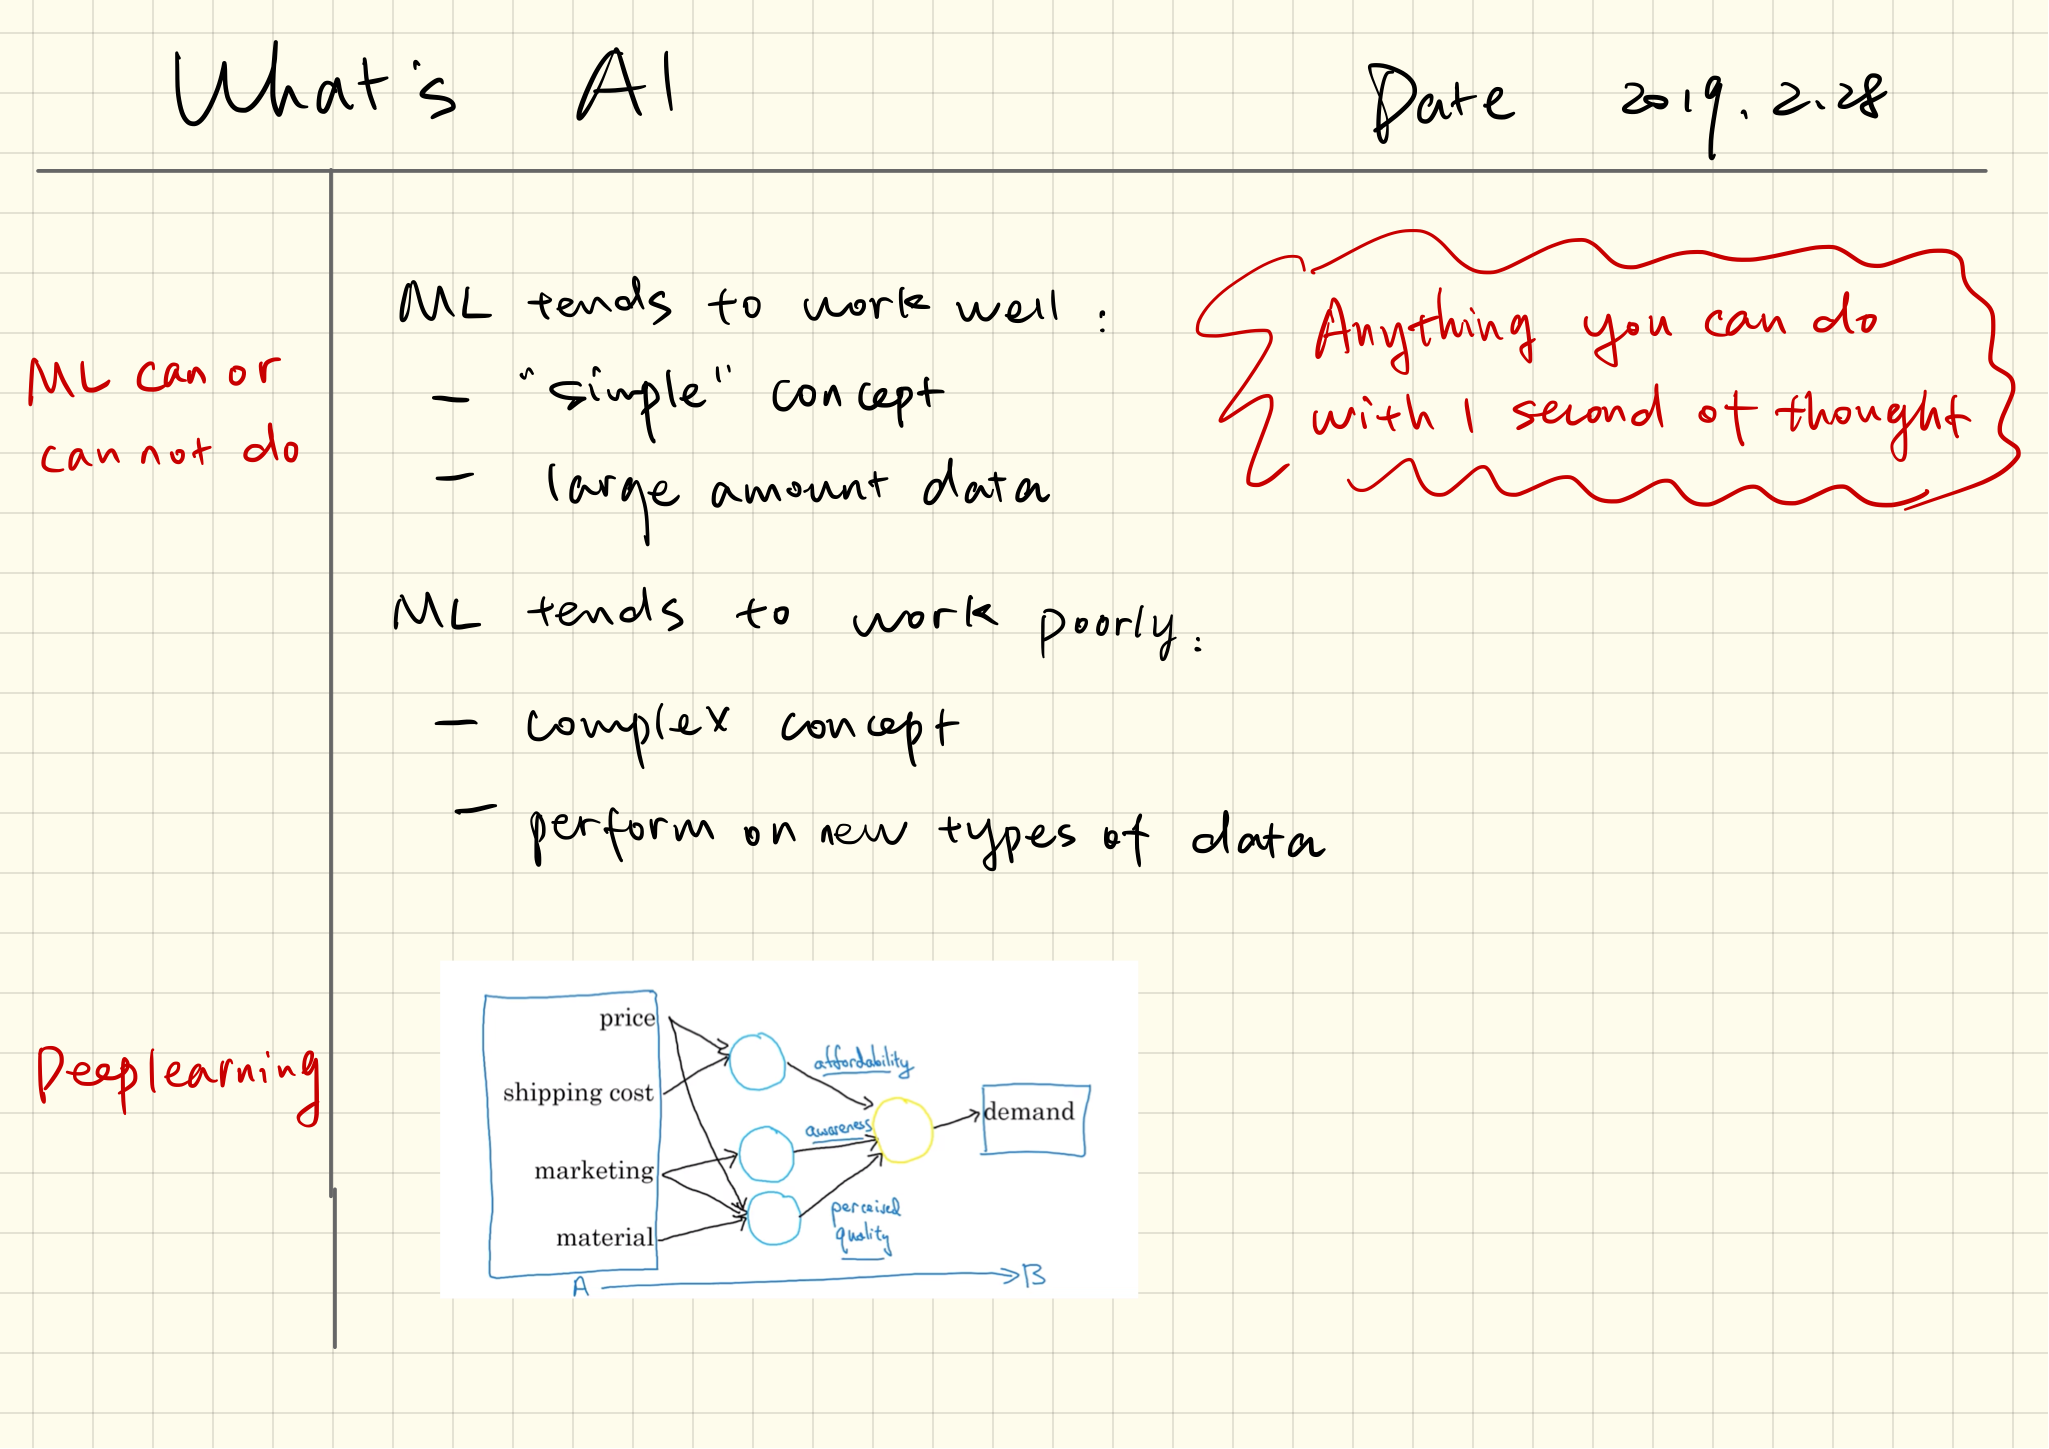 What's AI
Date 2019.2.28
ML can or
can not do
ML tends to work well:
- "simple" concept
- large amount data
Anything you can do
with 1 second of thought
ML tends to work poorly:
- complex concept
- perform on new types of data
Deeplearning
price
shipping cost
marketing
material
affordability
awareness
perceived
quality
demand
A
B